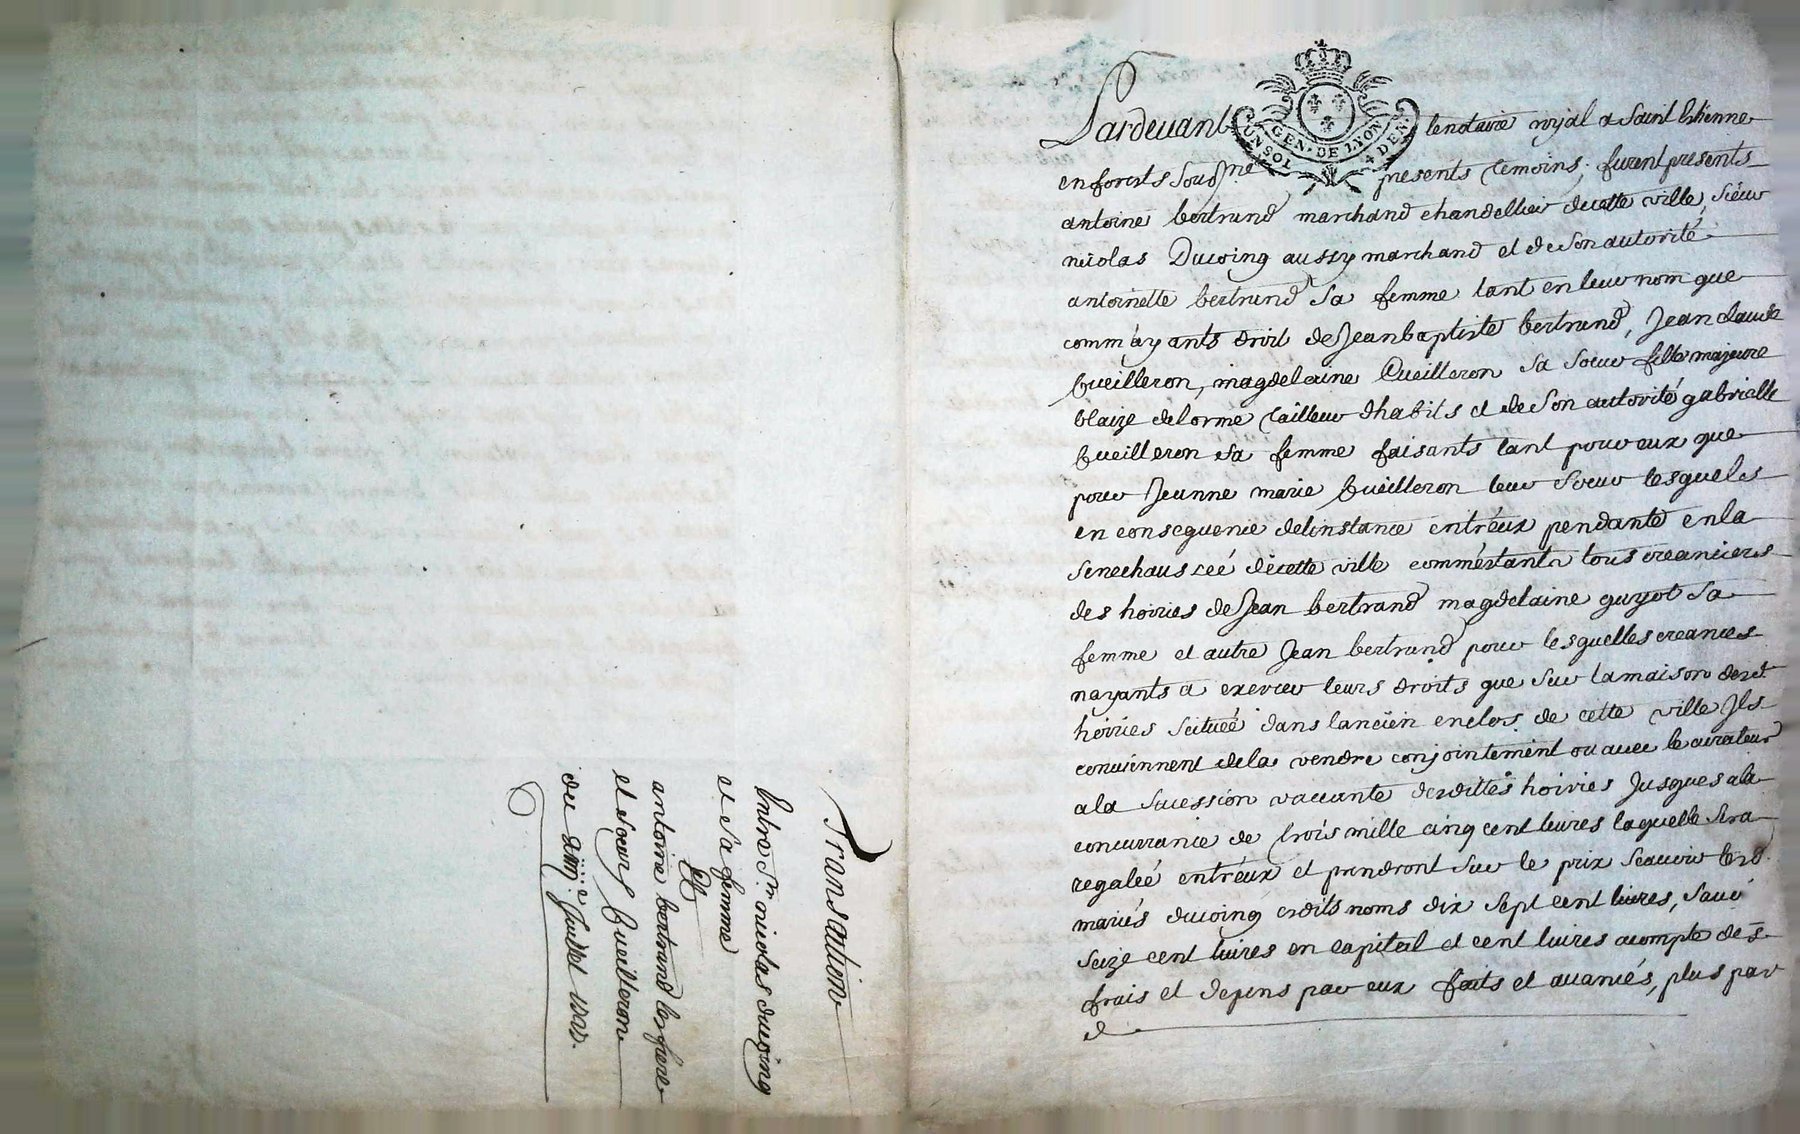 Transaction
Entre Sr. nicolas ducoing
et sa femme
Et
antoine bertrand les frere
et soeurs Cueilleron
du Juillet
Pardevant le notaire royal a Saint Etienne
GEN. DE LYON
UN SOL 4 DEN.
en forests sousne presents temoins; furent presents
antoine bertrand marchand chandellier de cette ville, sieur
nicolas Ducoing aussy marchand et de son autorité
antoinette bertrand sa femme tant en leur nom que
comm'ayants droit de Jean baptiste bertrand, Jean claude
Cueilleron, magdelaine Cueilleron sa soeur fille majeure
blaize delorme tailleur dhabits et de son autorité gabrielle
Cueilleron sa femme faisants tant pour eux que
pour Jeanne marie Cueilleron leur soeur lesquels
en consequence delinstance entr'eux pendante en la
senechaussée de cette ville comm'estants tous creanciers
des hoiries de Jean bertrand magdelaine guyot sa
femme et autre Jean bertrand pour lesquelles creances
nayants a exercer leurs droits que sur la maison desd.
hoiries scituée dans lancien enclos de cette ville Ils
conviennent de la vendre conjointement ou avec le curateur
a la sucession vaccante desdittes hoiries Jusques a la
concurrance de trois mille cinq cent livres laquelle sera
regalée entr'eux et prendront sur le prix scavoir lesd.
mariés ducoing esdits noms dix sept cent livres, savé
seize cent livres en capital et cent livres acompte des
frais et depens par eux faits et avancés, plus par